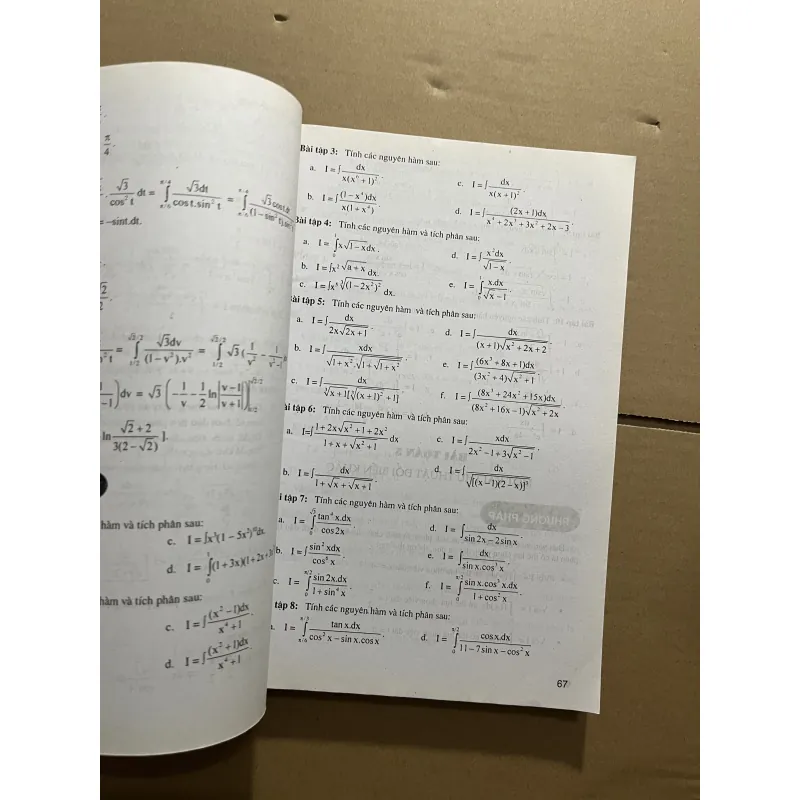 π/4.
√3/cos² t dt = ∫_{π/6}^{π/4} √3dt/(cos t.sin² t) =
= –sint.dt.
= ∫_{1/2}^{√2/2} √3dv/((1 – v²).v²) = ∫_{1/2}^{√2/2} √3 (1/v² –
dv = √3 (–1/v – 1/2 ln|(v – 1)/(v + 1)|)
ln (√2 + 2)/(3(2 – √2)) ].
hàm và tích phân sau:
c. I = ∫x³(1 – 5x²)
d. I = ∫_0^1 (1 + 3x)(1 + 2x +
hàm và tích phân sau:
c. I = ∫ (x² – 1)dx/(x⁴ + 1).
d. I = ∫ (x² + 1)dx/(x⁴ + 1).
Bài tập 3: Tính các nguyên hàm sau:
a. I = ∫ dx/(x(x⁶ + 1)²).
c. I = ∫ dx/(x(x + 1)²).
b. I = ∫ (1 – x⁴)dx/(x(1 + x⁴)).
d. I = ∫ (2x + 1)dx/(x⁴ + 2x³ + 3x² + 2x – 3).
Bài tập 4: Tính các nguyên hàm và tích phân sau:
a. I = ∫_0^1 x√(1 – x)dx.
d. I = ∫ x²dx/√(1 – x).
b. I = ∫x²√(a + x) dx.
e. I = ∫_0^1 x.dx/(√x – 1).
c. I = ∫x⁵ ∛((1 – 2x²)²) dx.
ài tập 5: Tính các nguyên hàm và tích phân sau:
a. I = ∫ dx/(2x√(2x + 1)).
d. I = ∫ dx/((x + 1)√(x² + 2x + 2)).
b. I = ∫ xdx/(√(1 + x²).√(1 + √(1 + x²))).
e. I = ∫ (6x³ + 8x + 1)dx/((3x² + 4)√(x² + 1)).
c. I = ∫ dx/(∛(x + 1)[∛((x + 1)²) + 1]).
f. I = ∫ (8x³ + 24x² + 15x)dx/((8x² + 16x – 1)√(x² + 2x)).
ài tập 6: Tính các nguyên hàm và tích phân sau:
a. I = ∫ (1 + 2x√(x² + 1) + 2x²)/(1 + x + √(x² + 1)) dx
c. I = ∫ xdx/(2x² – 1 + 3√(x² – 1)).
b. I = ∫ dx/(1 + √x + √(x + 1)).
d. I = ∫ dx/√([(x – 1)(2 – x)]³)
i tập 7: Tính các nguyên hàm và tích phân sau:
a. I = ∫ tan⁴ x.dx/cos2x.
d. I = ∫ dx/(sin2x – 2sinx).
b. I = ∫ sin² xdx/cos⁶ x.
e. I = ∫ dx/(sin x.cos³ x).
c. I = ∫_0^{π/2} sin 2x.dx/(1 + sin⁴ x).
f. I = ∫_0^{π/2} sin x.cos³ x.dx/(1 + cos² x).
tập 8: Tính các nguyên hàm và tích phân sau:
I = ∫_{π/6}^{π/3} tan x.dx/(cos² x – sin x.cos x).
d. I = ∫_0^{π/2} cosx.dx/(11 – 7 sin x – cos² x)
67